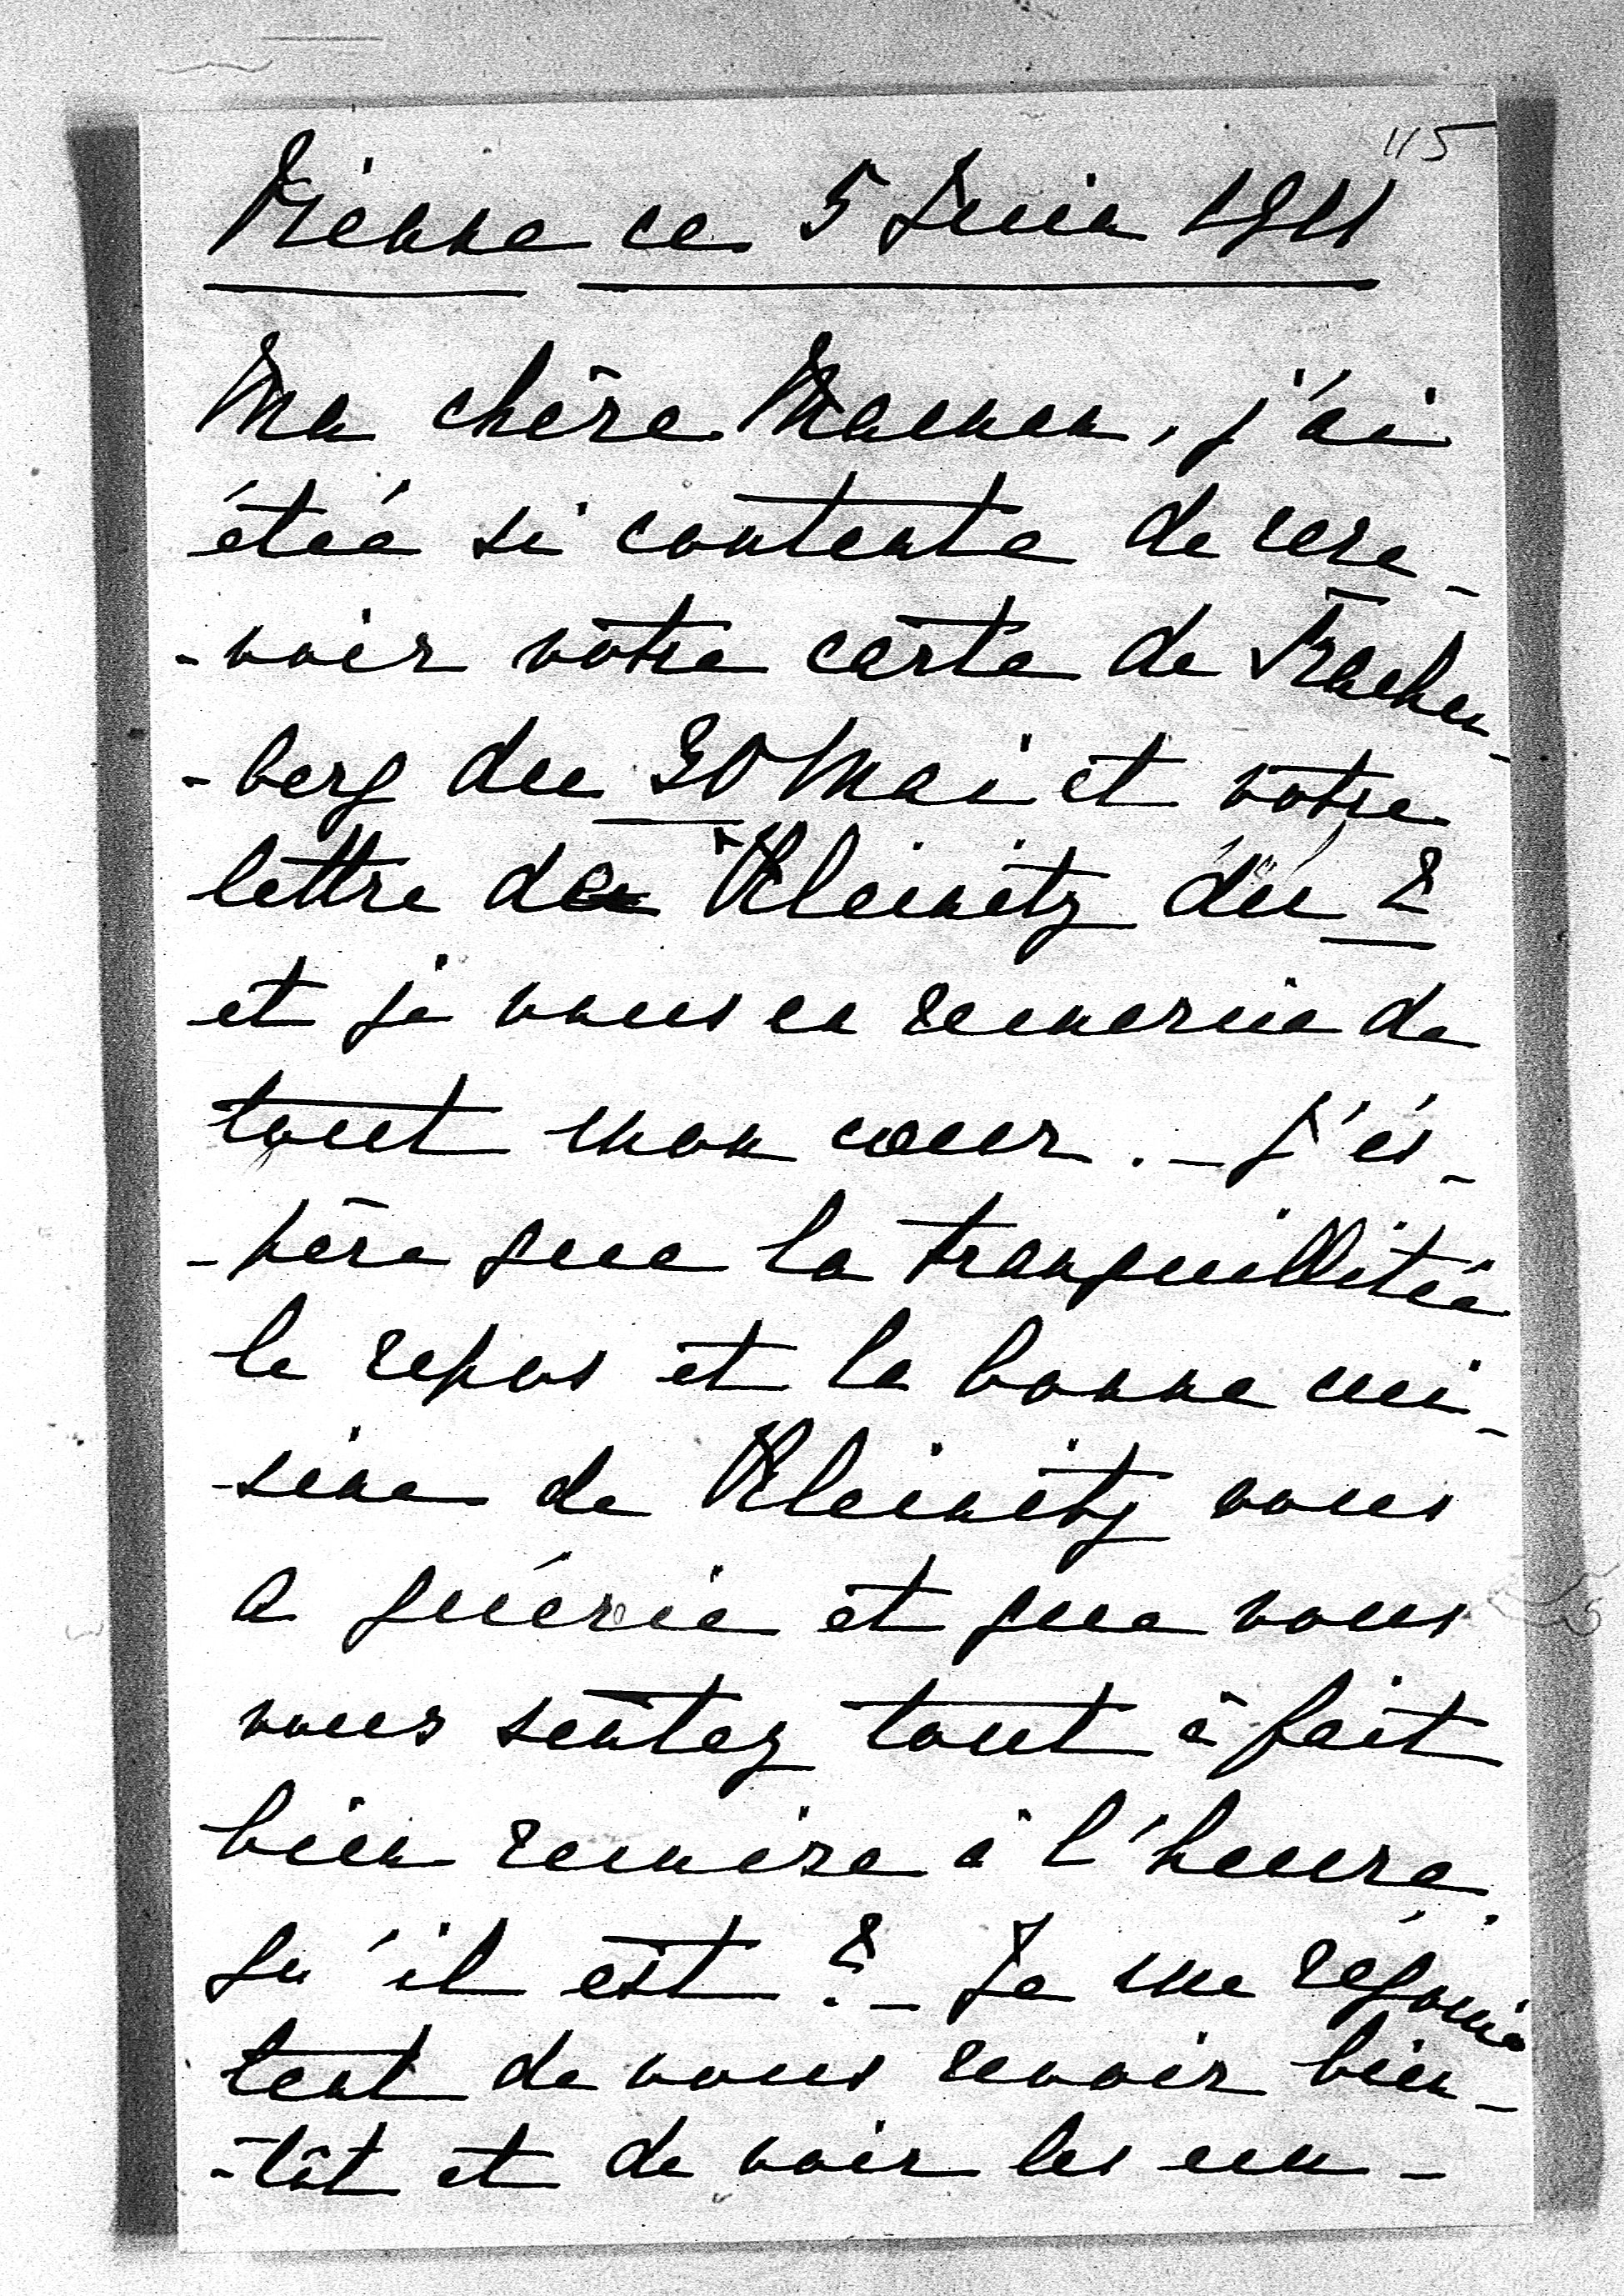 115
Vienne ce 5 Juin 1911
Ma chère Maman, j'ai
étée si contente de rece-
-voir votre carte de Trachen-
-berg du 30 Mai et votre
lettre de Kleinitz du 2
et je vous en remercie de
tout mon cœur. - J'es-
-père que la tranquillitée
le repos et la bonne cui-
-sine de Kleinitz vous
a guérie et que vous
vous sentez tout à fait
bien remise à l'heure
qu'il est ? - Je me réjouis
tent de vous revoir bien-
-tôt et de voir les